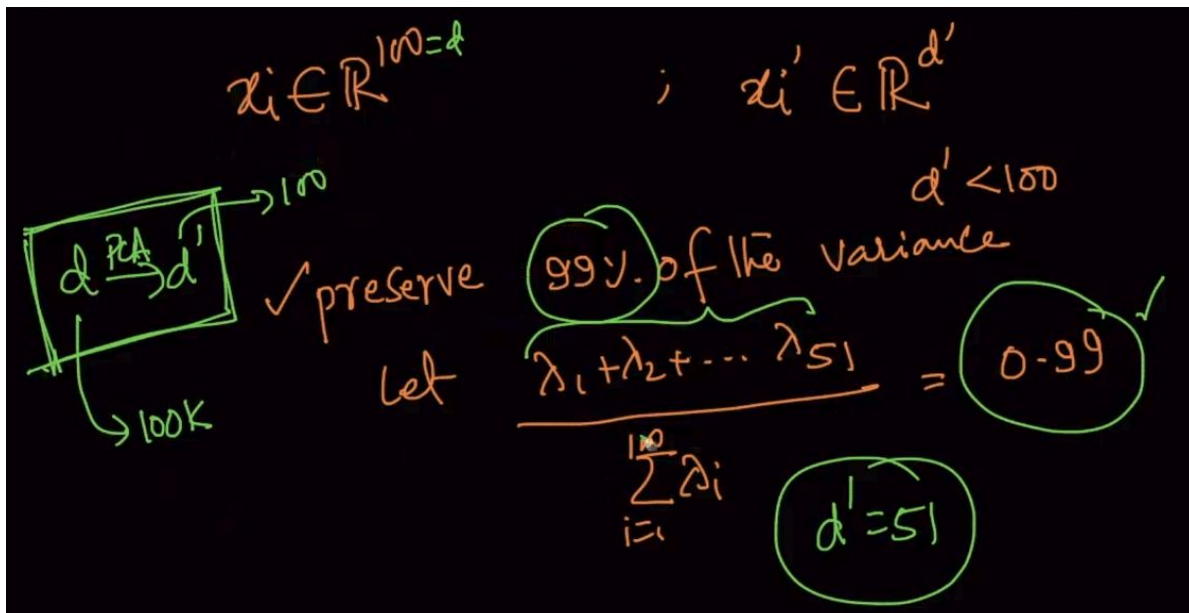 xi ∈ ℝ^100=d ; xi' ∈ ℝ^d'
d' <100
→100
d PCA→ d'
→100K
✓ preserve 99%. of the variance
Let (λ1+λ2+... λ51) / (∑ i=1 100 λi) = 0.99 ✓
d'=51